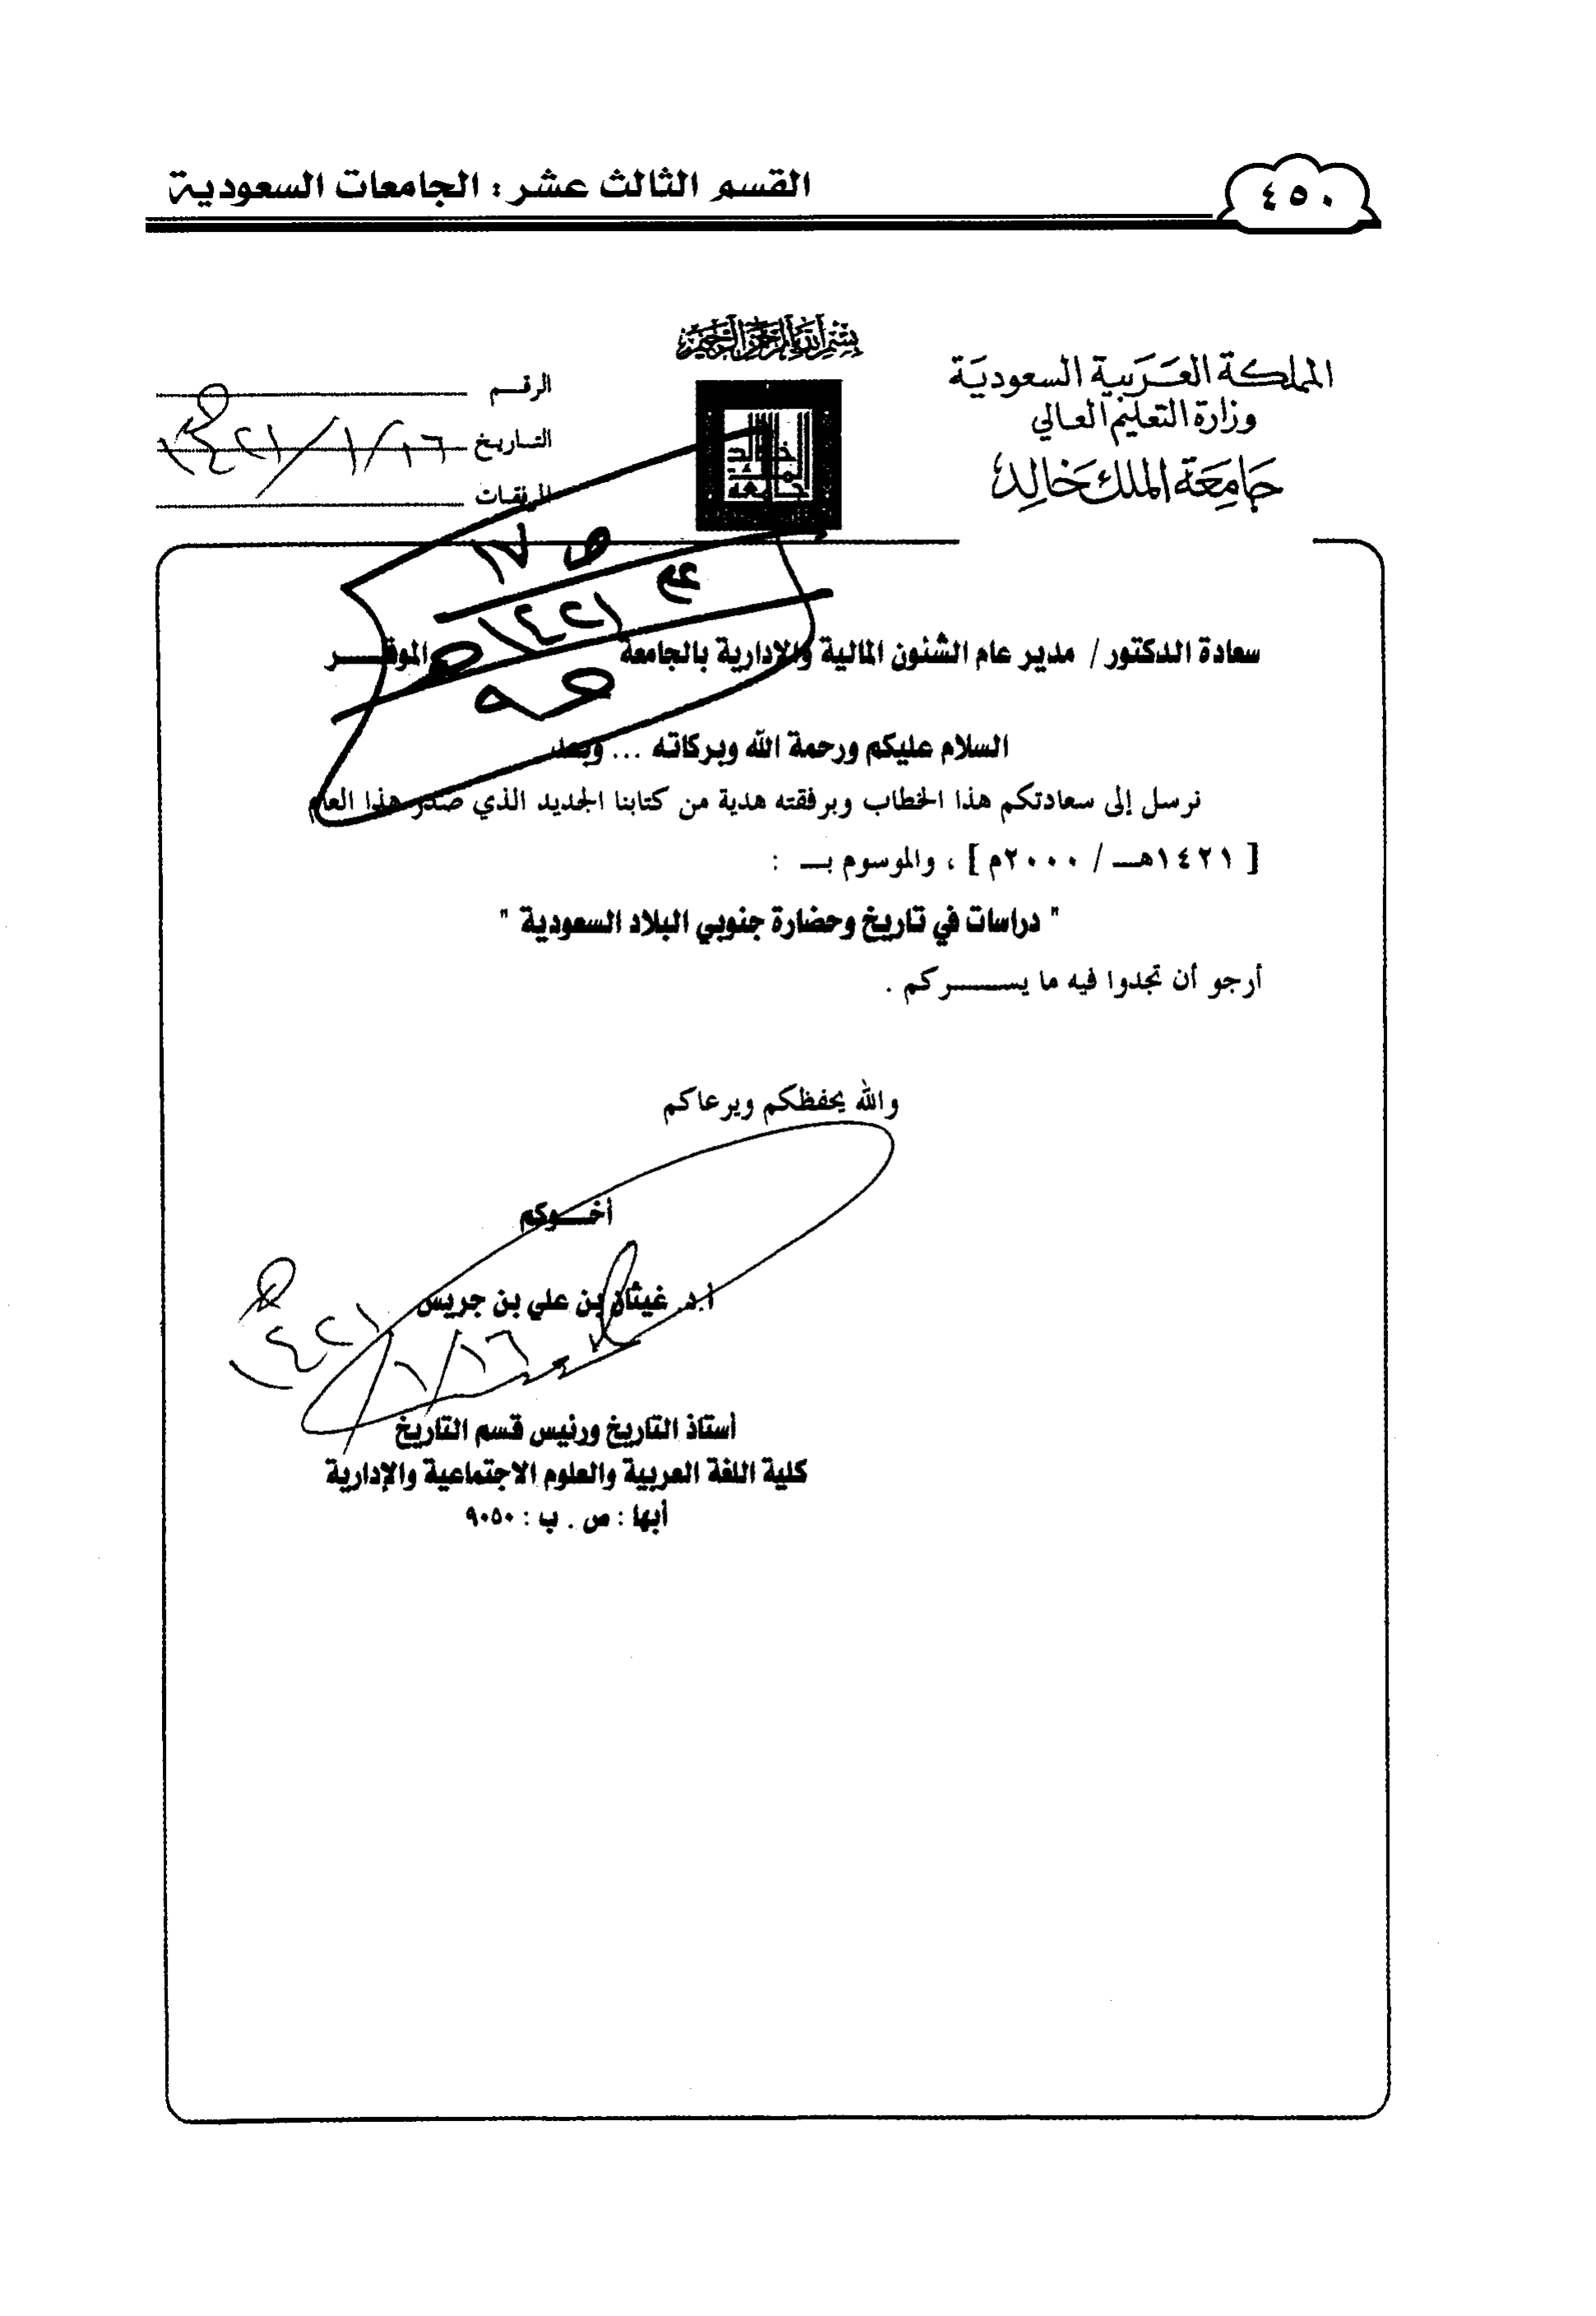 ٤٥٠
القسم الثالث عشر : الجامعات السعودية
بسم الله الرحمن الرحيم
المملكة العربية السعودية
وزارة التعليم العالي
جامعة الملك خالد
جامعة
الملك
خالد
الرقم
التاريخ ١٤٢١/١/١٦هـ
المرفقات
ص ١٧
م ع
١٤٢١هـ
سعادة الدكتور / مدير عام الشئون المالية والإدارية بالجامعة الموقـــر
السلام عليكم ورحمة الله وبركاته ... وبعد
نرسل إلى سعادتكم هذا الخطاب وبرفقته هدية من كتابنا الجديد الذي صدر هذا العام
[ ١٤٢١هـــ / ٢٠٠٠م ] ، والموسوم بـــ :
" دراسات في تاريخ وحضارة جنوبي البلاد السعودية "
أرجو أن تجدوا فيه ما يســـــركم .
والله يحفظكم ويرعاكم
أخـــوكم
أ.د. غيثان بن علي بن جريس
١٤٢١/١/١٦هـ
أستاذ التاريخ ورئيس قسم التاريخ
كلية اللغة العربية والعلوم الاجتماعية والإدارية
أبها : ص . ب : ٩٠٥٠